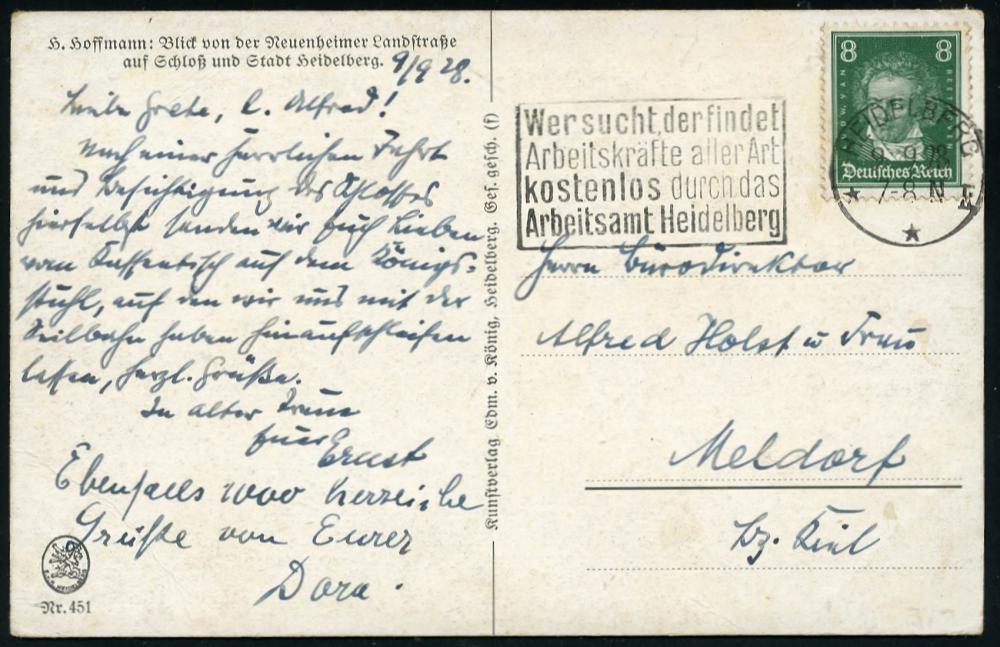 H. Hoffmann: Blick von der Neuenheimer Landstraße
auf Schloß und Stadt Heidelberg.
9/9 28.
Liebe Grete, l. Alfred!
Nach einer herrlichen Fahrt
und Besichtigung des Schlosses
hierselbst senden wir Euch Lieben
vom Kaffeetisch auf dem Königs-
stuhl, auf den wir uns mit der
Seilbahn haben hinaufschleifen
lassen, herzl. Grüße.
In alter Treue
Euer Ernst
Ebenfalls 1000 herzliche
Grüße von Eurer
Dora.
Nr. 451
Kunstverlag Edm. v. König, Heidelberg. Ges. gesch. (f)
Wer sucht, der findet
Arbeitskräfte aller Art
kostenlos durch das
Arbeitsamt Heidelberg
8 8
Deutsches Reich
HEIDELBERG
9.9.28
7-8 N
Herrn Bürodirektor
Alfred Holst u Frau
Meldorf
Bz. Kiel